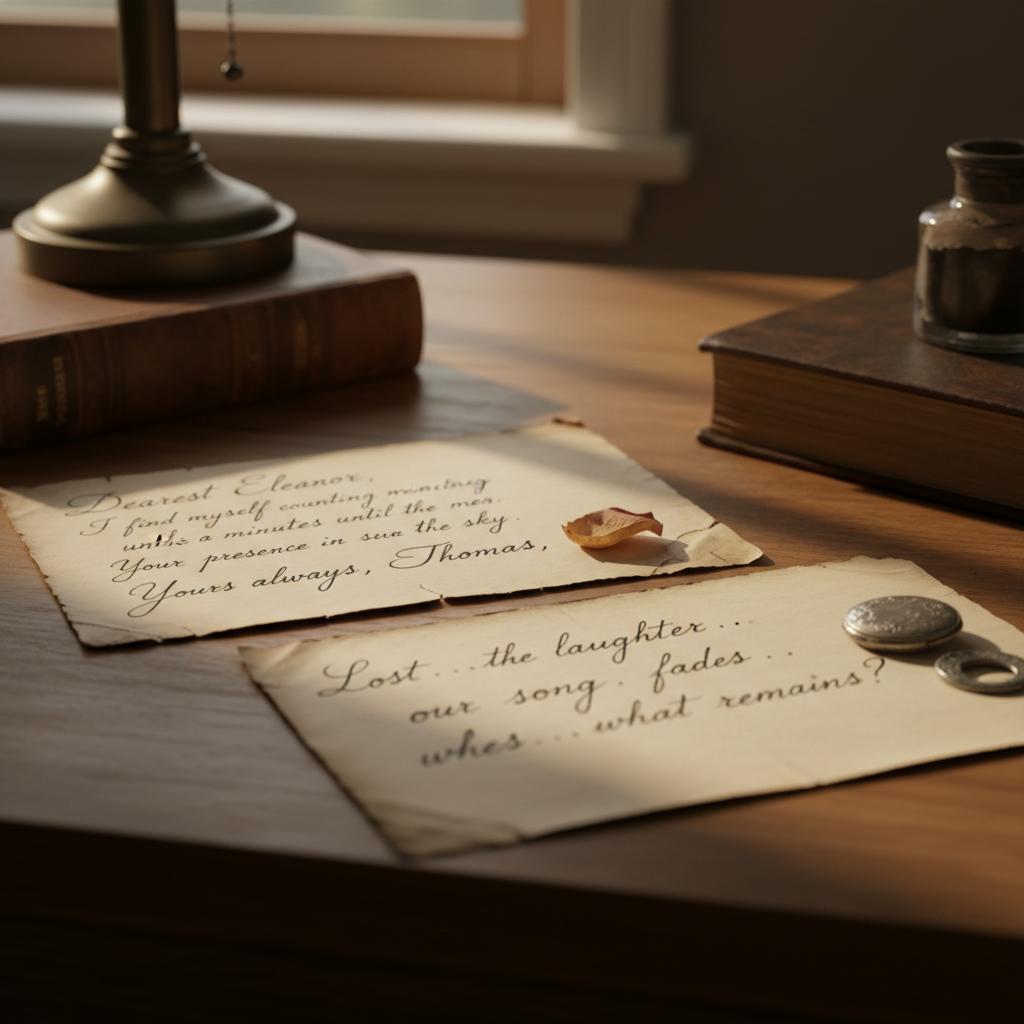 Dearest Eleanor,
I find myself counting
a minutes until the mes.
Your presence in sun the sky.
Yours always, Thomas,
Lost... the laughter...
our song. fades..
whes... what remains?